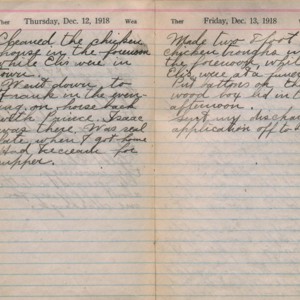 Ther Thursday, Dec. 12, 1918 Wea
Cleaned the chicken
house in the forenoon
while Elis were in
town.
Went down, to
Frank in the even-
ing, on horse back
with Prince. Isaac
was there. Was real
late when I got home
And icecream for
supper.
Ther Friday, Dec. 13, 1918
Made two 8 foot
chicken troughs in
the forenoon, while
Elis were at a
Put bottons on the
wood box in the
afternoon.
Sent my
application off to